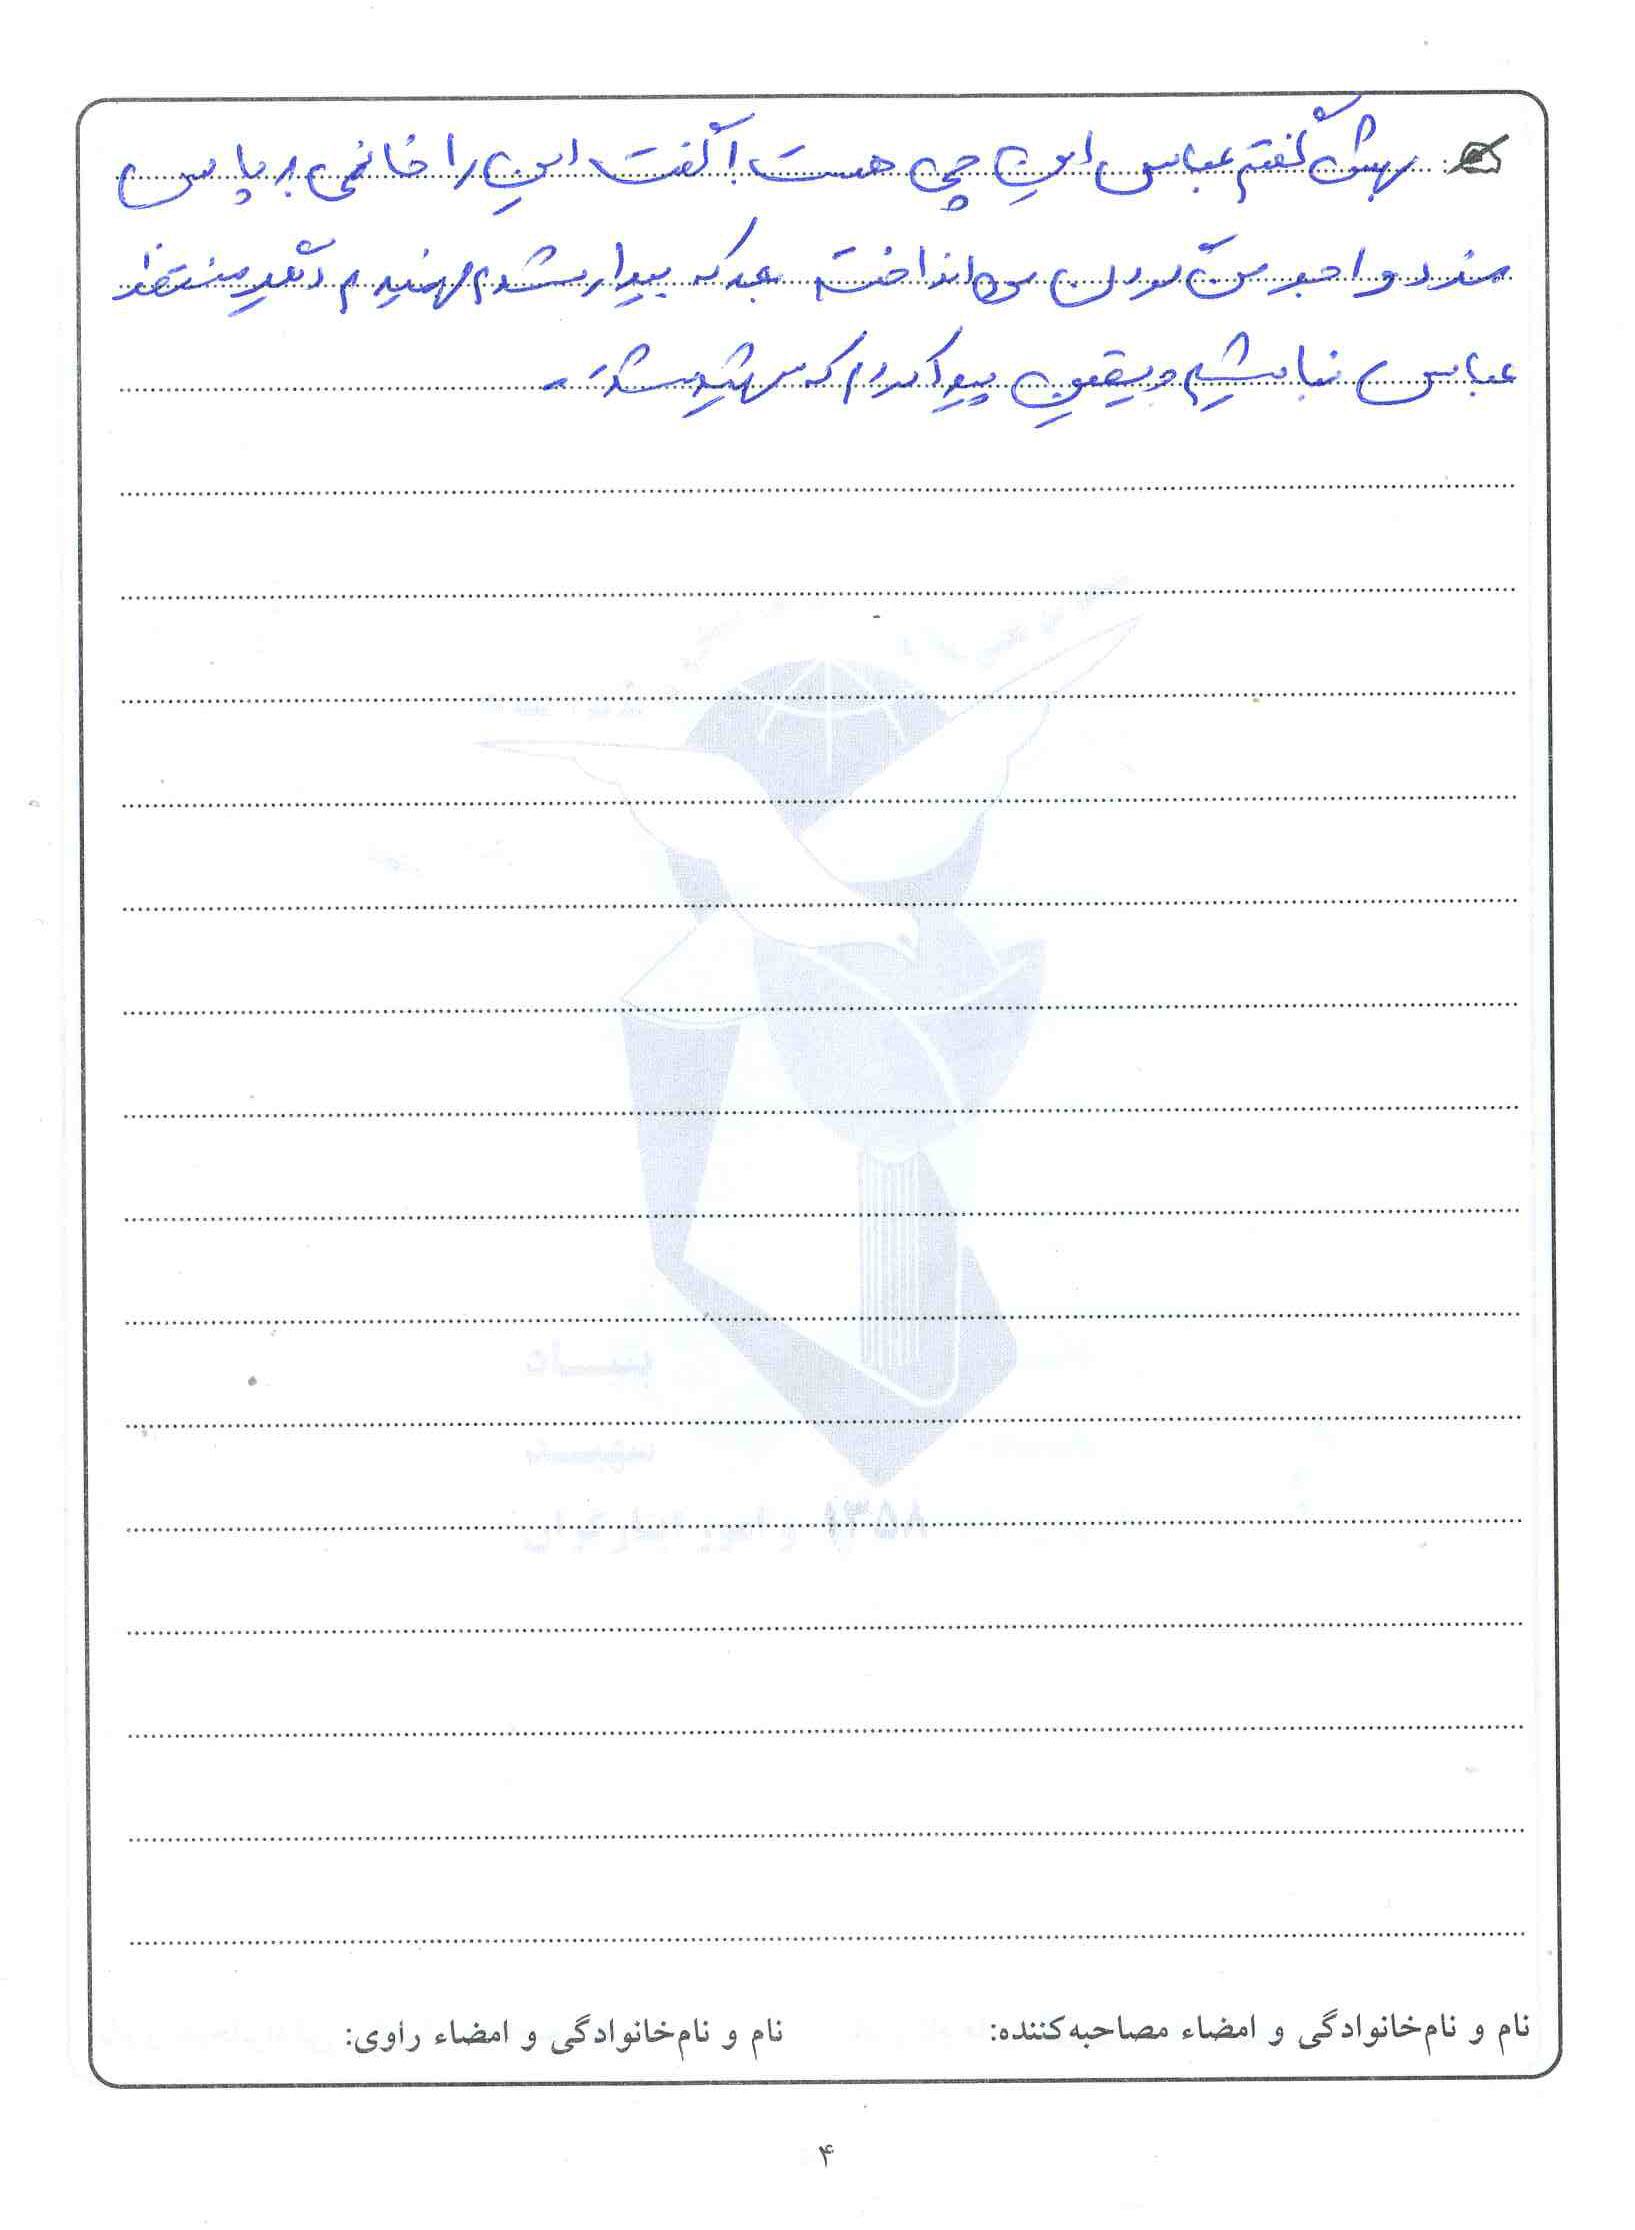 بهش گفتم عباس این چی هست! گفت این را خانمی به پاس
و انداخت بعد که بیدار شدم فهمیدم دیگر منتظر
عباس نباشیم و یقین پیدا کردم که شهید شده.
بنیاد
شهید
۱۳۵۸
و امور ایثارگران
نام و نام‌خانوادگی و امضاء مصاحبه‌کننده:
نام و نام‌خانوادگی و امضاء راوی:
۴